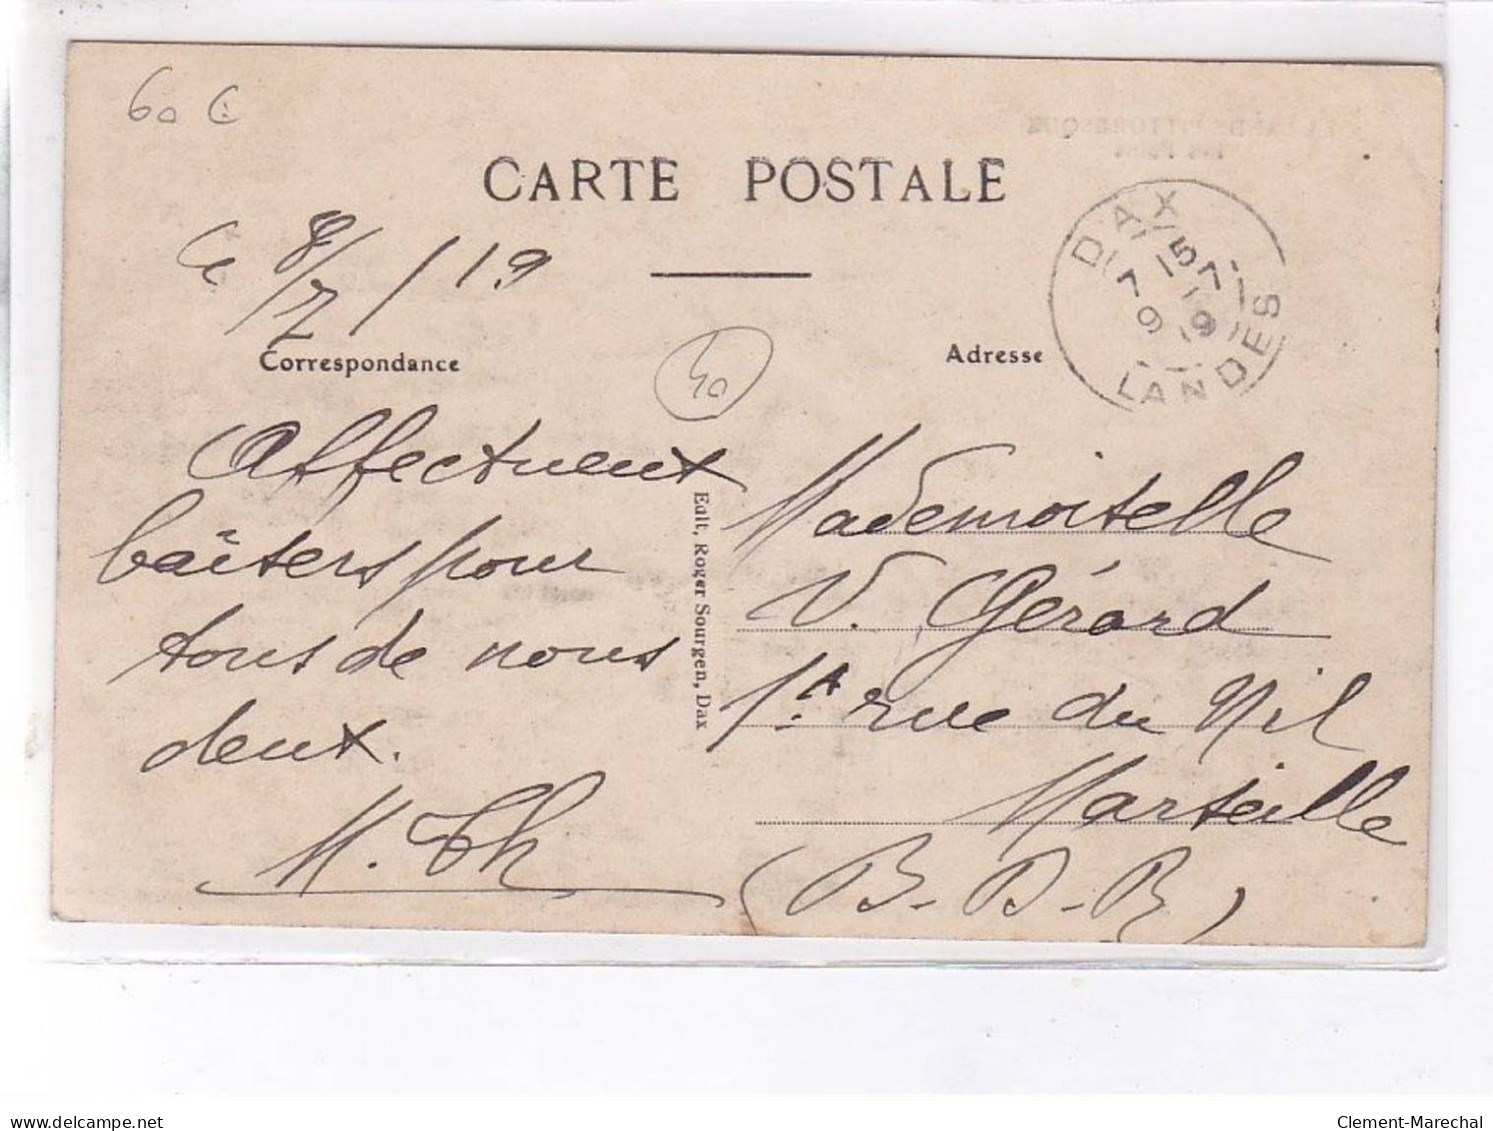 60 c
CARTE POSTALE
le 8/7/19
DAX
7 15
9 -7
19
LANDES
Correspondance
40
Adresse
Affectueux
baisers pour
tous de nous
deux.
M. Th
Edit, Roger Sourgen, Dax
Mademoiselle
V. Gérard
1A rue du Nil
Marseille
(B-D-R)
www.delcampe.net
Clement-Marechal